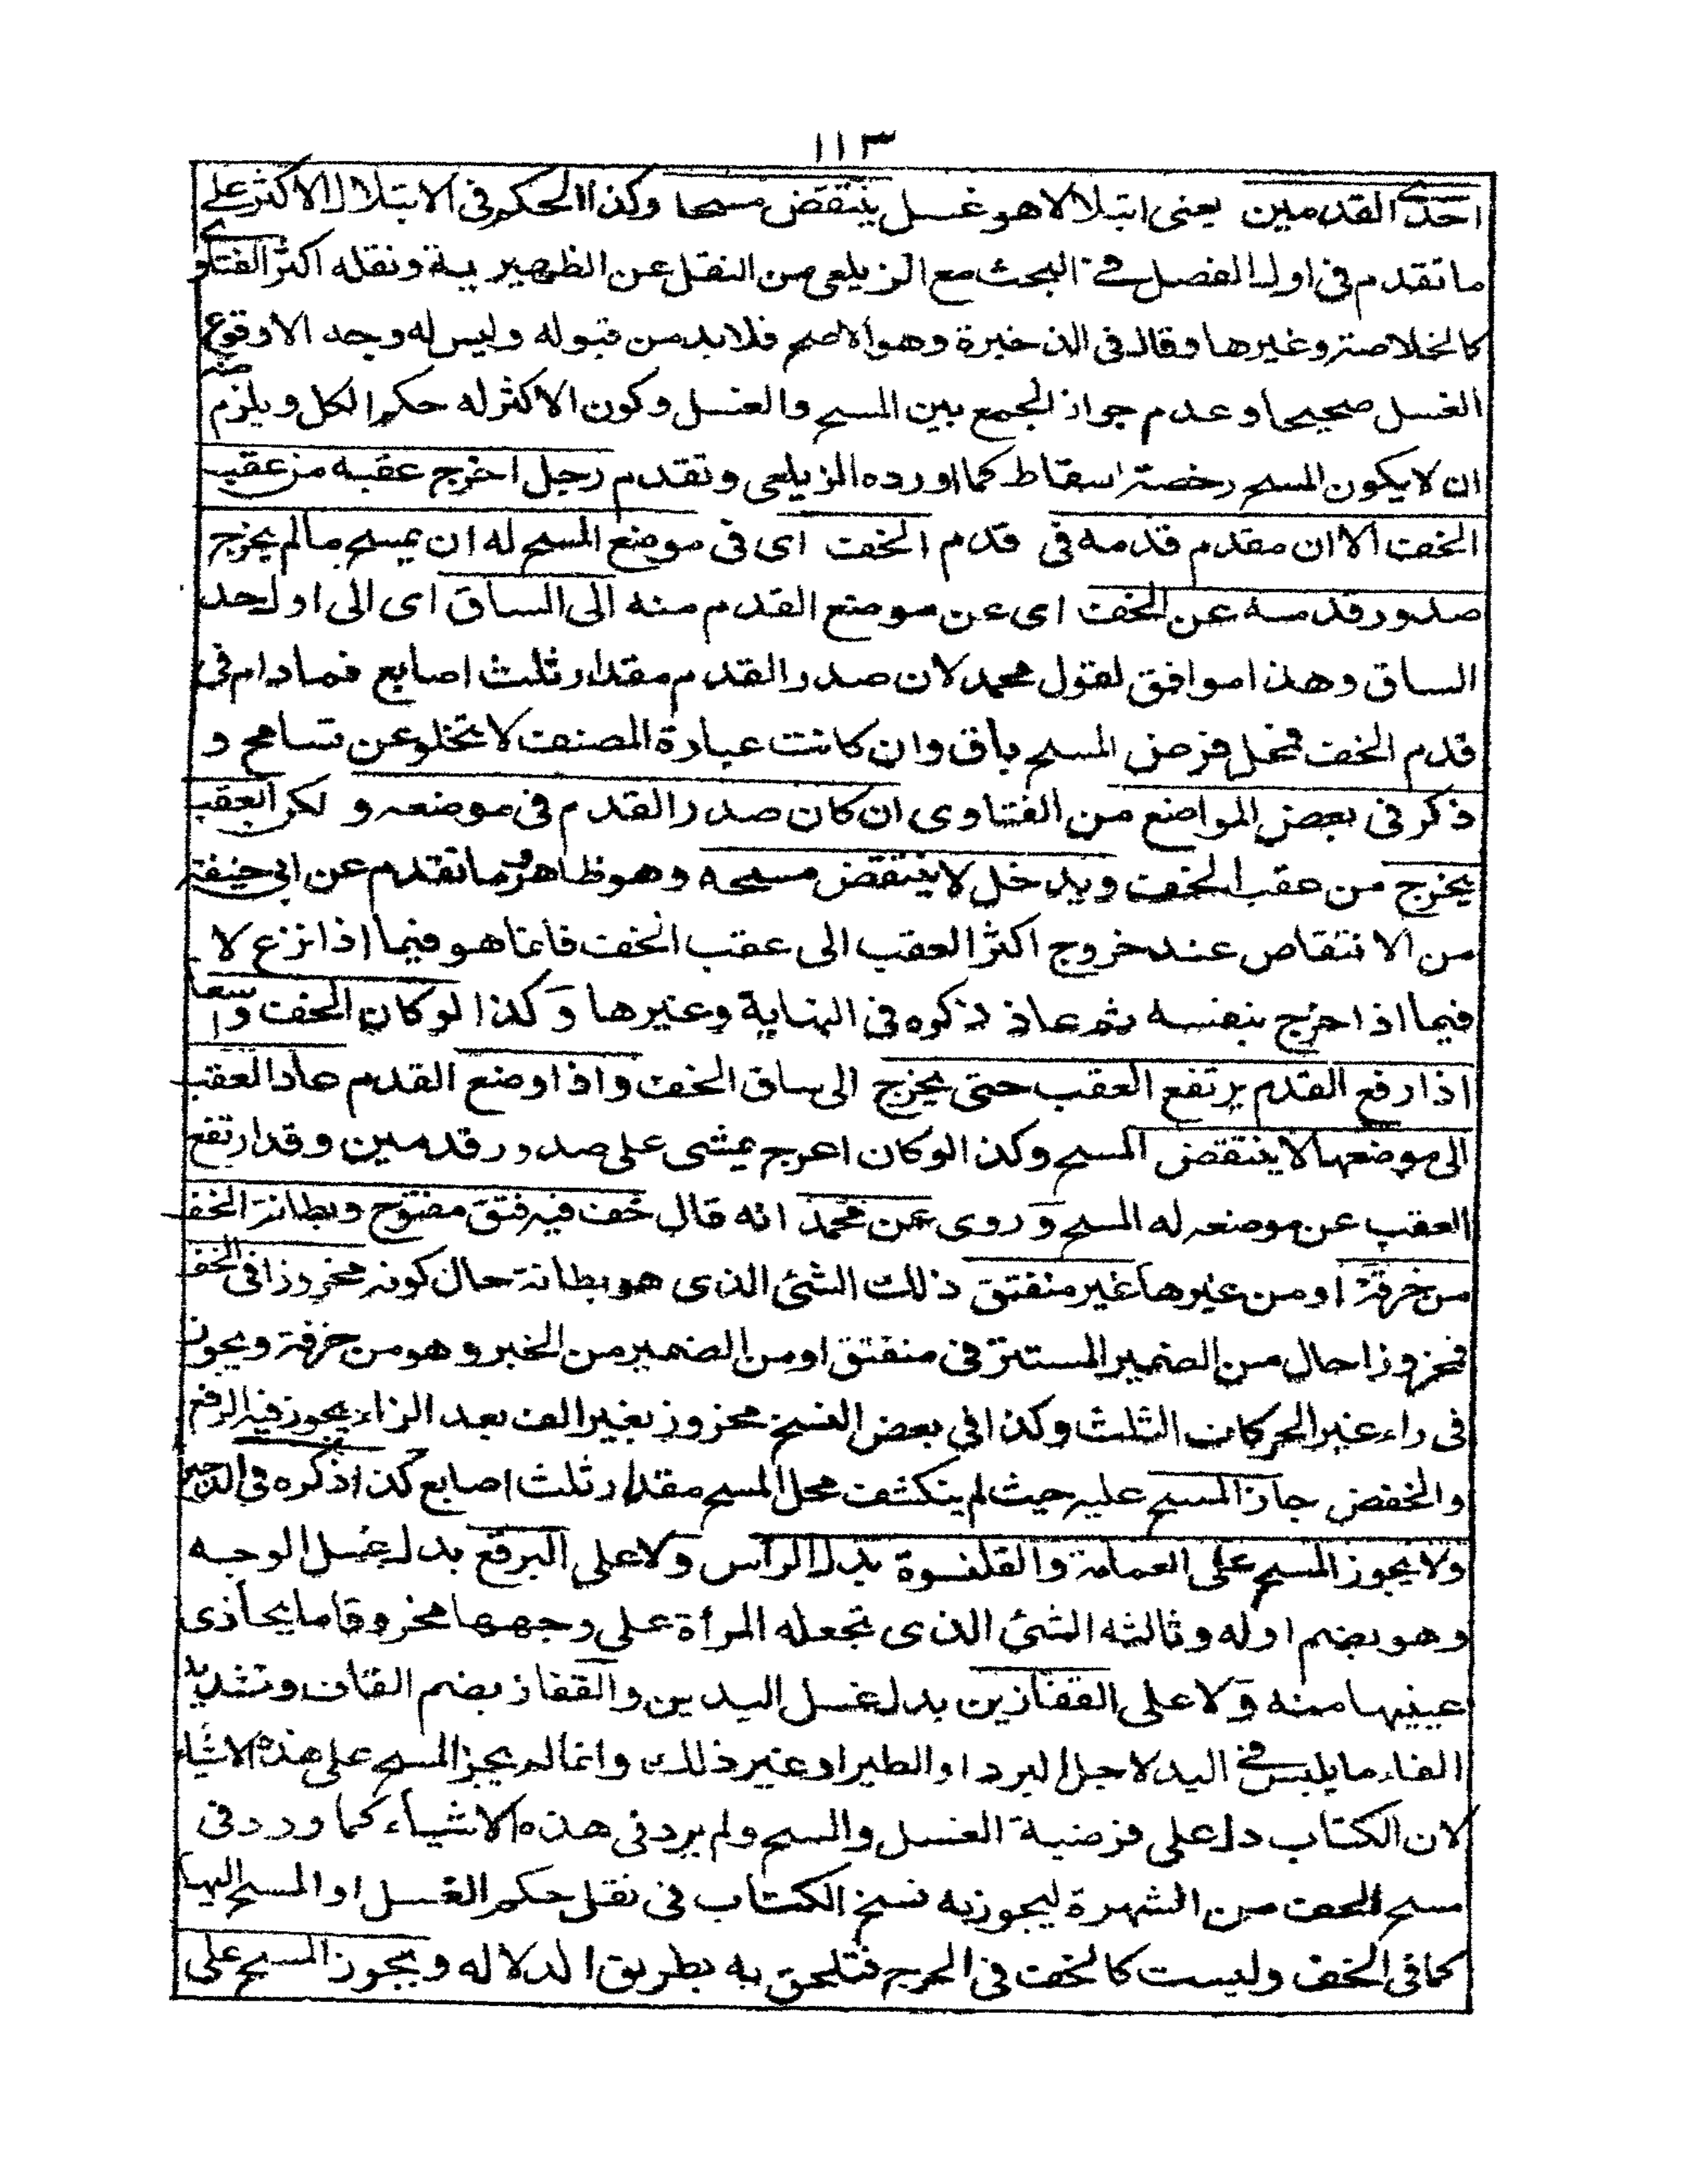 ١١٣
احدى القدمين يعنى ابتلالا هو غسل ينتقض مسحها وكذا الحكم فى الابتلال الاكثر على
ما تقدم فى اول الفصل فى البحث مع الزيلعى من النقل عن الظهيرية ونقله اكثر الفتاوى
كالخلاصة وغيرها وقال فى الذخيرة وهو الاصح فلا بد من قبوله وليس له وجه الا وقوع
الغسل صحيحا وعدم جواز الجمع بين المسح والغسل وكون الاكثر له حكم الكل ويلزم منه
ان لا يكون المسح رخصة اسقاط كما اورده الزيلعى وتقدم رجل اخرج عقبه من عقب
الخف الا ان مقدم قدمه فى قدم الخف اى فى موضع المسح له ان يمسح مالم يخرج
صدور قدمه عن الخف اى عن موضع القدم منه الى الساق اى الى اول حد
الساق وهذا موافق لقول محمد لان صدر القدم مقدار ثلث اصابع فما دام فى
قدم الخف فمحل فرض المسح باق وان كانت عبارة المصنف لا تخلو عن تسامح و
ذكر فى بعض المواضع من الفتاوى ان كان صدر القدم فى موضعه و لكن العقب
يخرج من عقب الخف ويدخل لا ينتقض مسحه وهو ظاهر وما تقدم عن ابى حنيفة
من الانتقاص عند خروج اكثر العقب الى عقب الخف فانما هو فيما اذا نزع لا
فيما اذا خرج بنفسه ثم عاد ذكره فى النهاية وغيرها وكذا لو كان الخف واسعا
اذا رفع القدم يرتفع العقب حتى يخرج الى ساق الخف واذا وضع القدم عاد العقب
الى موضعها لا ينتقض المسح وكذا لو كان اعرج يمشى على صدور قدمين وقد ارتفع
العقب عن موضعه له المسح وروى عن محمد انه قال خف فيه فتق مفتوح وبطانة الخف
من خرقة او من غيرها غير منفتق ذلك الشئ الذى هو بطانة حال كونه مخروزا فى الخف
فمخروزا حال من الضمير المستتر فى منفتق او من الضمير من الخبر وهو من خرقة ويجوز
فى راء غير الحركات الثلث وكذا فى بعض النسخ مخروز بغير الف بعد الزاء يجوز فيه الرفع
والخفض جاز المسح عليه حيث لم ينكشف محل المسح مقدار ثلث اصابع كذا ذكره فى
ولا يجوز المسح على العمامة والقلنسوة بدل الراس ولا على البرقع بدل غسل الوجه
وهو بضم اوله وثالثه الشئ الذى تجعله المرأة على وجهها مخروقا ما يحاذى
عينيها منه ولا على القفازين بدل غسل اليدين والقفاز بضم القاف وتشديد
الفاء ما يلبس فى اليد لاجل البرد او الطير او غير ذلك وانما لم يجز المسح على هذه الاشياء
لان الكتاب دل على فرضية الغسل والمسح ولم يرد فى هذه الاشياء كما ورد فى
مسح الخف من الشهرة ليجوز به نسخ الكتاب فى نقل حكم الغسل او المسح اليها
كما فى الخف وليست كالخف فى الحرج فتلحق به بطريق الدلاله ويجوز المسح على